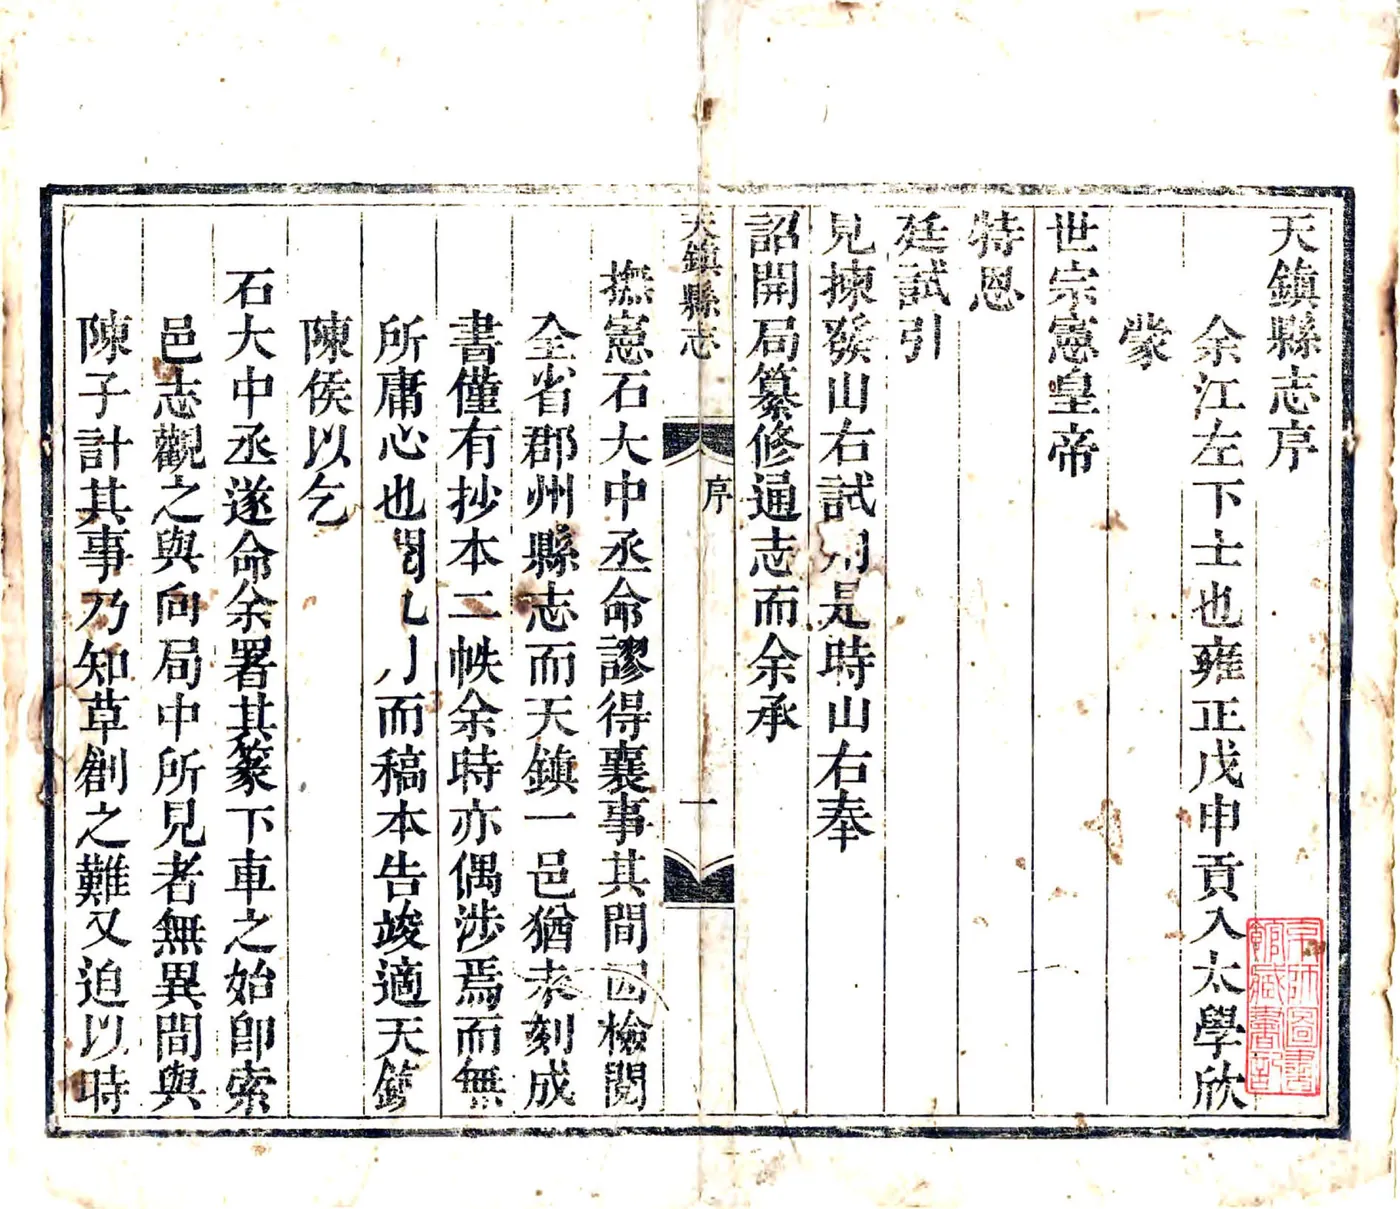 天鎮縣志序
余江左下士也雍正戊申貢入太學欣
蒙
世宗憲皇帝
特恩
廷試引
見揀發山右試用是時山右奉
詔開局纂修通志而余承
天鎮縣志
序
一
撫憲石大中丞命謬得襄事其間因檢閱
全省郡州縣志而天鎮一邑猶未刻成
書僅有抄本二帙余時亦偶涉焉而無
所庸心也 而稿本告竣適天鎮
陳侯以乞
石大中丞遂命余署其篆下車之始卽索
邑志觀之與向局中所見者無異間與
陳子計其事乃知草創之難又迫以時